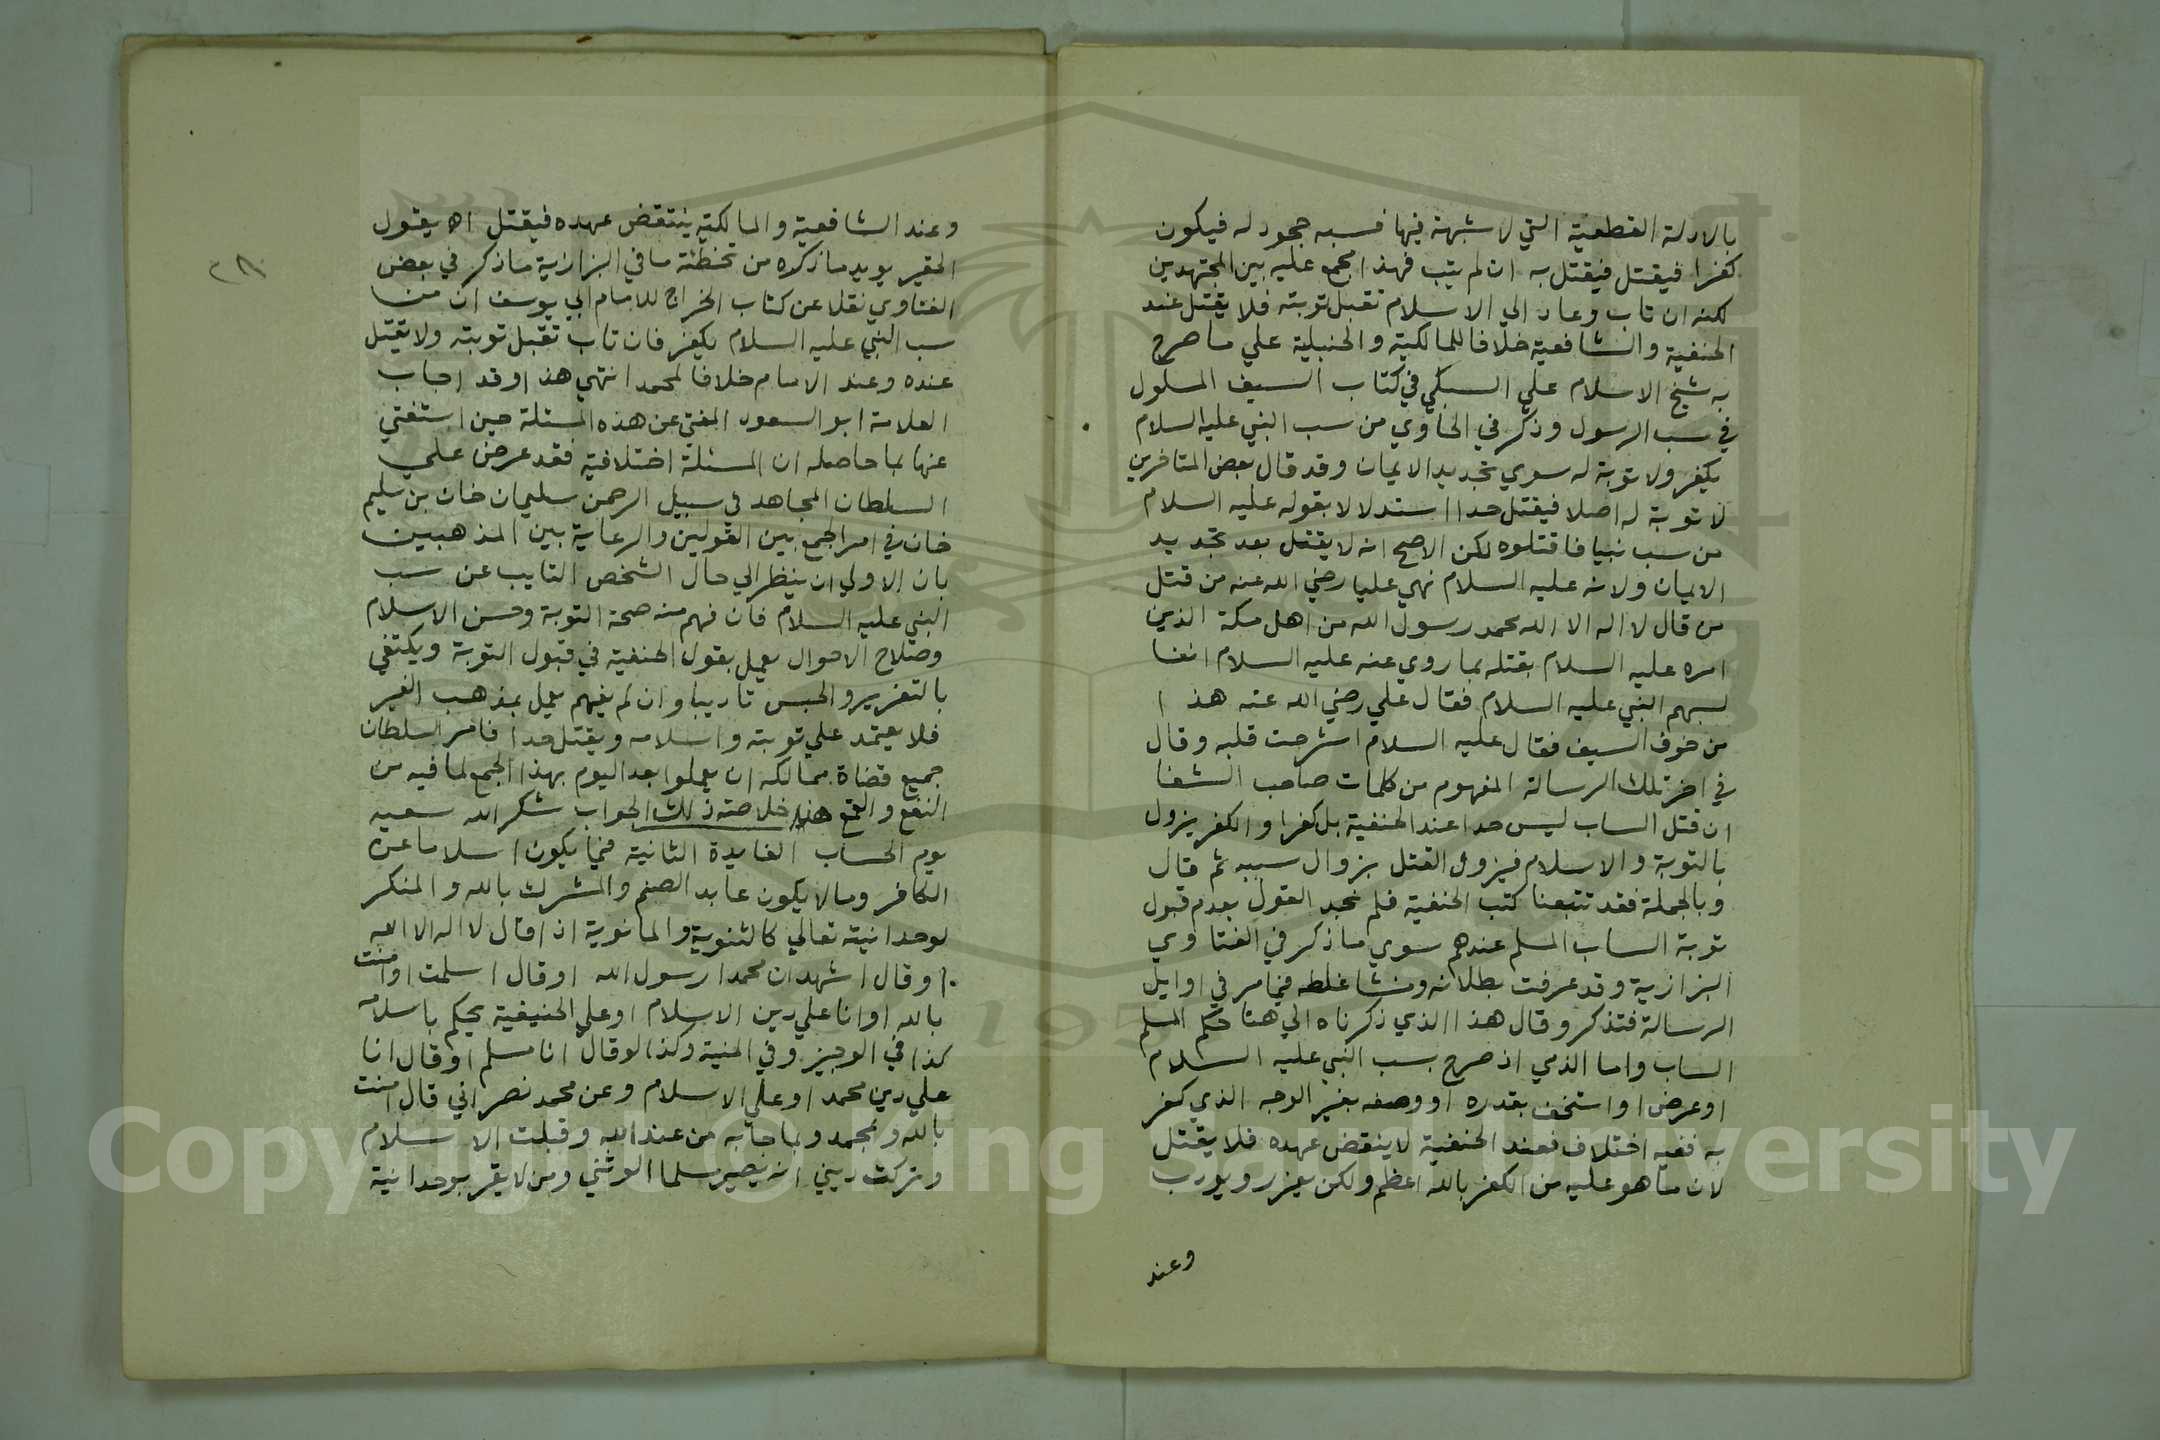 بالادلة القطعية التي لا شبهة فيها فسبه جحود له فيكون
كفرا فيقتل فيقتل به ان لم يتب فهذا مجمع عليه بين المجتهدين
لكنه ان تاب وعاد الي الاسلام تقبل توبته فلا يقتل عند
الحنفية والشافعية خلافا للمالكية والحنبلية علي ما صرح
به شيخ الاسلام علي السبكي في كتاب السيف المسلول
في سب الرسول وذكر في الحاوي من سب النبي عليه السلام
يكفر ولا توبة له سوي تجديد الايمان وقد قال بعض المتاخرين
لا توبة له اصلا فيقتل حدا استدلالا بقوله عليه السلام
من سب نبيا فاقتلوه لكن الاصح انه لا يقتل بعد تجديد
الايمان ولانه عليه السلام نهي عليا رضي الله عنه من قتل
من قال لا اله الا الله محمد رسول الله من اهل مكة الذين
امره عليه السلام بقتله بما روي عنه عليه السلام انفا
لسبهم النبي عليه السلام فقال علي رضي الله عنه هذا
من خوف السيف فقال عليه السلام اشرحت قلبه وقال
في اخر تلك الرسالة المفهوم من كلمات صاحب الشفا
ان قتل الساب ليس حدا عند الحنفية بل كفرا والكفر يزول
بالتوبة والاسلام فيزول القتل بزوال سببه ثم قال
وبالجملة فقد تتبعنا كتب الحنفية فلم نجد القول بعدم قبول
توبة الساب المسلم عندهم سوي ما ذكر في الفتاوي
البزازية وقد عرفت بطلانه ومنشا غلطه فيما مر في اوايل
الرسالة فتذكر وقال هذا الذي ذكرناه الي هنا حكم المسلم
الساب واما الذمي اذ صرح بسب النبي عليه السلام
او عرض او استخف بقدره او وصفه بغير الوجه الذي كفر
به ففيه اختلاف فعند الحنفية لا ينقض عهده فلا يقتل
لان ما هو عليه من الكفر بالله اعظم ولكن يعزر ويودب
وعند
٢٨
وعند الشافعية والمالكية ينتقض عهده فيقتل اه يقول
الحقير يويد ما ذكره من تخطئة ما في البزازية ما ذكر في بعض
الفتاوي نقلا عن كتاب الخراج للامام ابي يوسف ان من
سب النبي عليه السلام يكفر فان تاب تقبل توبته ولا يقتل
عنده وعند الامام خلافا لمحمد انتهي هذا وقد اجاب
العلامة ابو السعود المفتي عن هذه المسئلة حين استفتي
عنها بما حاصله ان المسئلة اختلافية فقد عرض علي
السلطان المجاهد في سبيل الرحمن سليمان خان بن سليم
خان في امر الجمع بين القولين والرعاية بين المذهبين
بان الاولي ان ينظر الي حال الشخص التايب عن سب
النبي عليه السلام فان فهم منه صحة التوبة وحسن الاسلام
وصلاح الاحوال يعمل بقول الحنفية في قبول التوبة ويكتفي
بالتعزير والحبس تاديبا وان لم يفهم يعمل بمذهب الغير
فلا يعتمد علي توبته واسلامه ويقتل حدا فامر السلطان
جميع قضاة ممالكه ان يعملوا بعد اليوم بهذا الجمع لما فيه من
النفع والقمع هذا خلاصة ذلك الجواب شكر الله سعيه
يوم الحساب الفايدة الثانية فيما يكون اسلاما عن
الكافر وما لا يكون عابد الصنم والمشرك بالله والمنكر
لوحدانيته تعالي كالثنوية والمانوية اذا قال لا اله الا الله
او قال اشهد ان محمدا رسول الله او قال اسلمت او امنت
بالله او انا علي دين الاسلام او علي الحنيفية يحكم باسلامه
كذا في الوجيز وفي المنية وكذا لو قال انا مسلم او قال انا
علي دين محمد او علي الاسلام وعن محمد نصراني قال امنت
بالله وبمحمد وبما جا به من عند الله وقبلت الاسلام
وتركت ديني انه يصير مسلما الوثني ومن لا يقر بوحدانية
Copyright © King Saud University
195